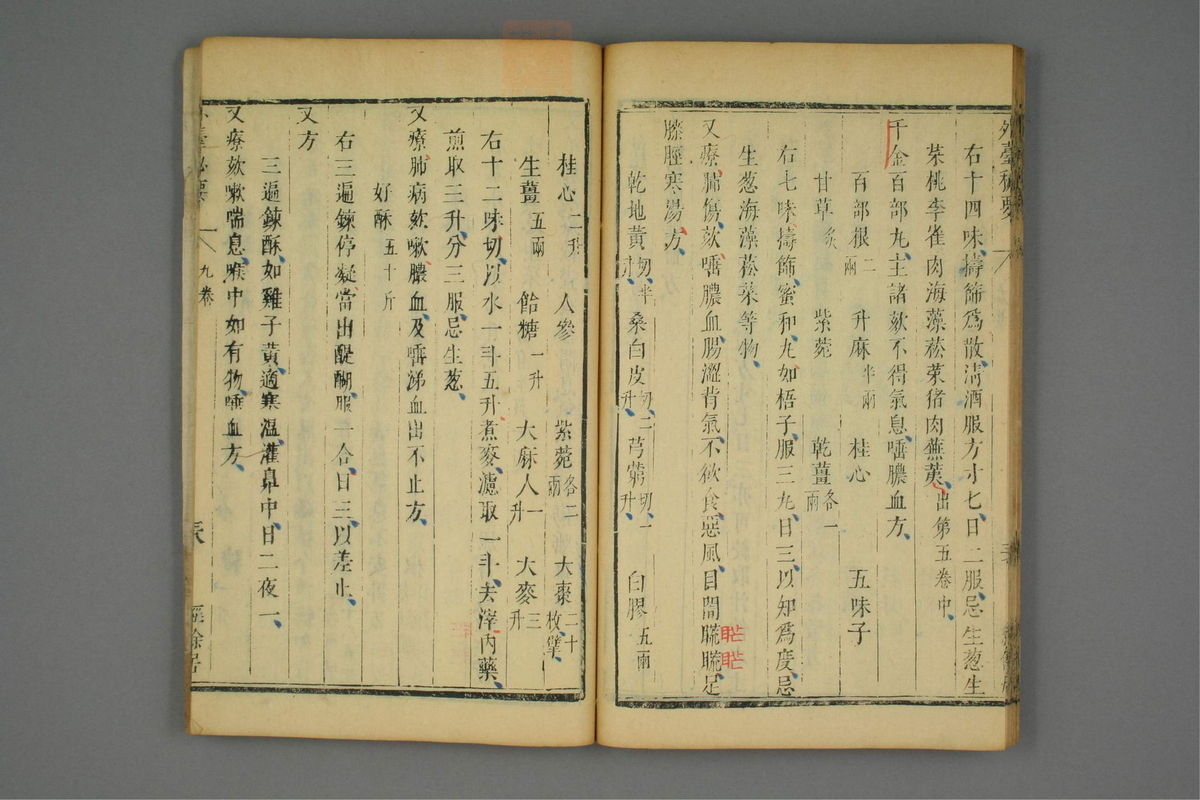 外臺秘要
右十四味擣篩爲散清酒服方寸匕日二服忌生葱生
菜桃李雀肉海藻菘菜猪肉蕪荑出第五卷中
千金百部丸主諸欬不得氣息唾膿血方
百部根二兩 升麻半兩 桂心 五味子
甘草炙 紫菀 乾薑各一兩
右七味擣篩蜜和丸如梧子服三丸日三以知爲度忌
生葱海藻菘菜等物
又療肺傷欬唾膿血腸澀背氣不欲食惡風目䀮䀮足
膝脛寒湯方
䀮䀮
乾地黃切半升 桑白皮切二升 芎藭切一升 白膠五兩
桂心二升 人參 紫菀各二兩 大棗二十枚擘
生薑五兩 飴糖一升 大麻人一升 大麥三升
右十二味切以水一斗五升煮麥濾取一斗去滓內藥
煎取三升分三服忌生葱
又療肺病欬嗽膿血及唾涕血出不止方
好酥五十斤
右三遍鍊停凝當出醍醐服一合日三以差止
又方
三遍鍊酥如雞子黃適寒温灌鼻中日二夜一
又療欬嗽喘息喉中如有物唾血方
九卷
經餘居